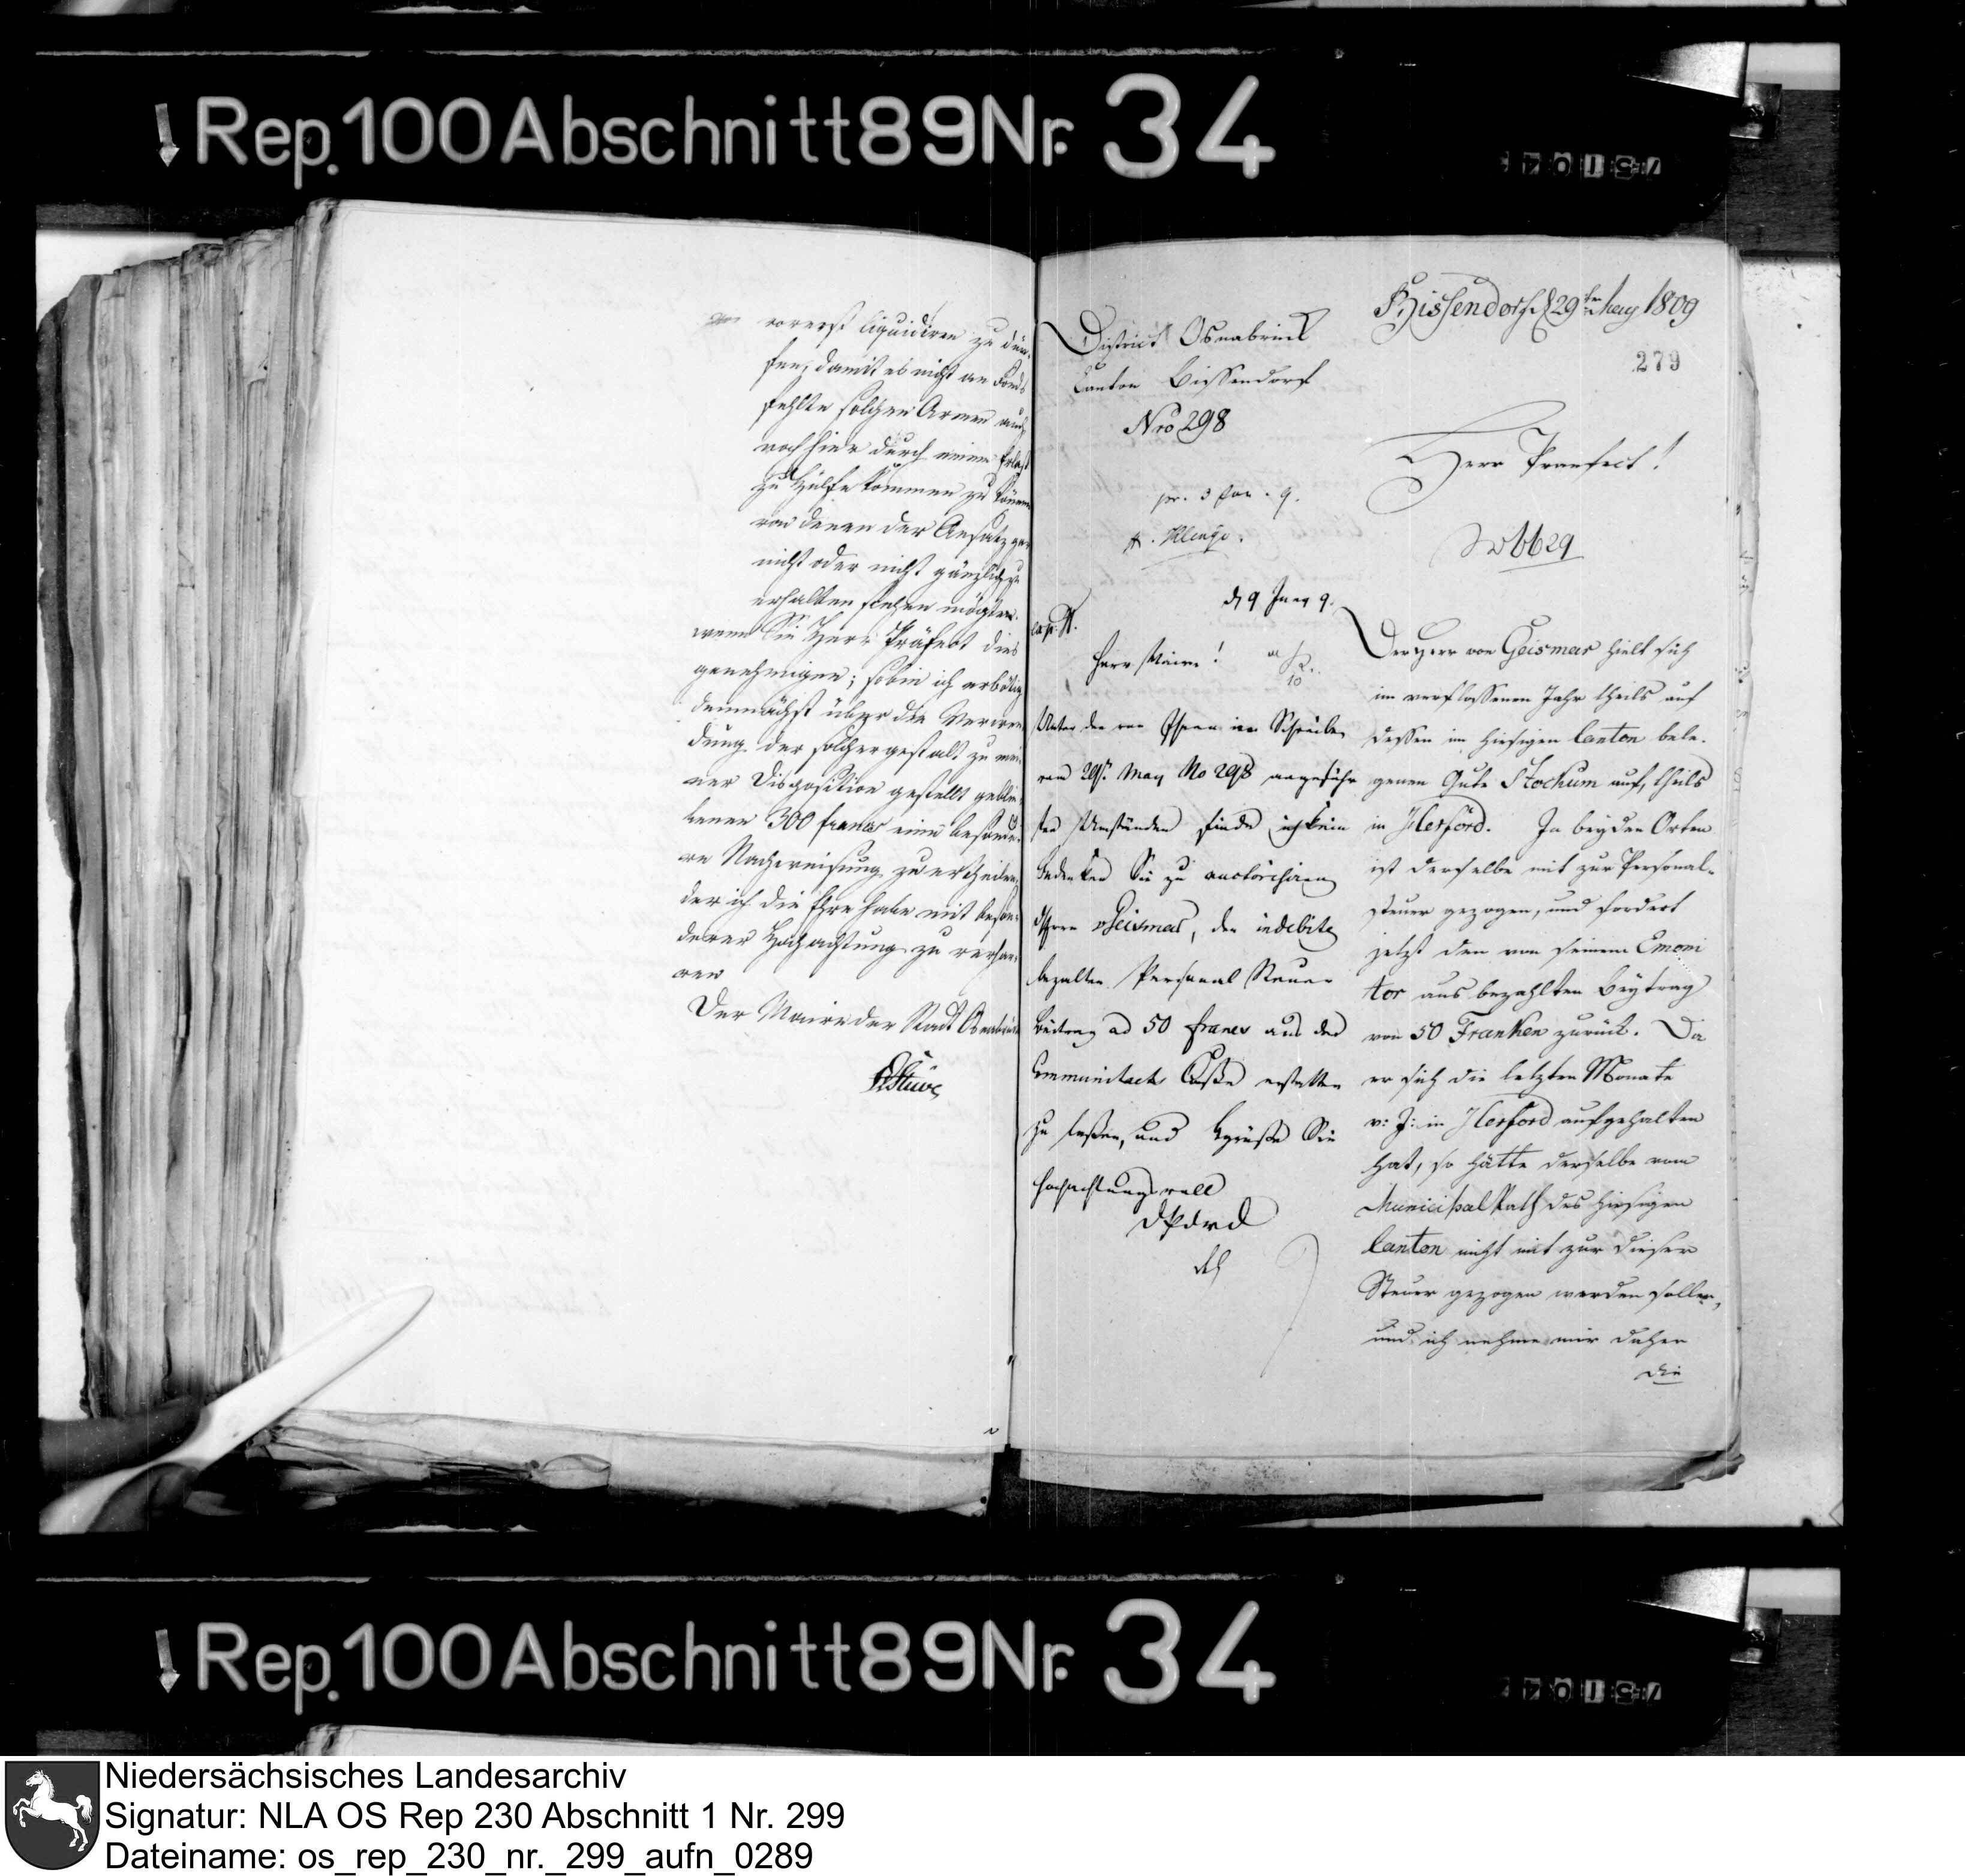 Rep. 100 Abschnitt 89 Nr. 34
vorerst liquidiren zu dür-
fen, damit es nicht an Fonds
fehlte solchen Armen auch
noch hier durch einen Erlaß
zu Hülfe kommen zu können
von denen der Ansatz gar
nicht oder nicht gänzlich zu
erhalten stehen mögten.
wenn Sie Herr Präfect dies
genehmigen; so bin ich erbötig
demnächst über die Verwen
dung der solchergestalt zu mei
ner Disposition gestellt geblie
benen 300 francs eine besonde
re Nachweisung zu ertheilen
der ich die Ehre habe mit beson
derer Hochachtung zu verhar
ren
Der Maire der Stadt Osnabrück
Stüve
Bissendorf d 29ten May 1809
279
District Osnabrück
Canton Bissendorf
Nro 298
pr. 3 Jun. 9.
Herr Praefect!
6629
d 9 Juny 9.
Herr Maire!
Unter den von Ihnen im Schreiben
vom 29t. May No 298 angeführ
ten Umständen finde ich kein
Bedenken Sie zu auctorisiren
dem Herrn v Geismar, den indebite
bezalten Personal Steuer
Beitrag ad 50 francs aus der
Communitaets Casse erstatten
zu lassen, und begrüße Sie
hochachtungsvoll
D P d W D
Der Herr von Geismar hielt sich
im verflossenen Jahr theils auf
dessen im hiesigen Canton bele-
genen Gute Stockum auf, theils
in Herford. In beyden Orten
ist derselbe mit zur Personal-
steuer gezogen, und fordert
jetzt den von seinem Emoni
tor aus bezahlten Beytrag
von 50 Franken zurück. Da
er sich die letzten Monate
v: J: in Herford aufgehalten
hat, so hätte derselbe vom
Municipal Rath des hiesigen
Canton nicht mit zur dieser
Steuer gezogen werden sollen,
und ich nehme mir daher
die
Rep. 100 Abschnitt 89 Nr. 34
Niedersächsisches Landesarchiv
Signatur: NLA OS Rep 230 Abschnitt 1 Nr. 299
Dateiname: os_rep_230_nr._299_aufn_0289